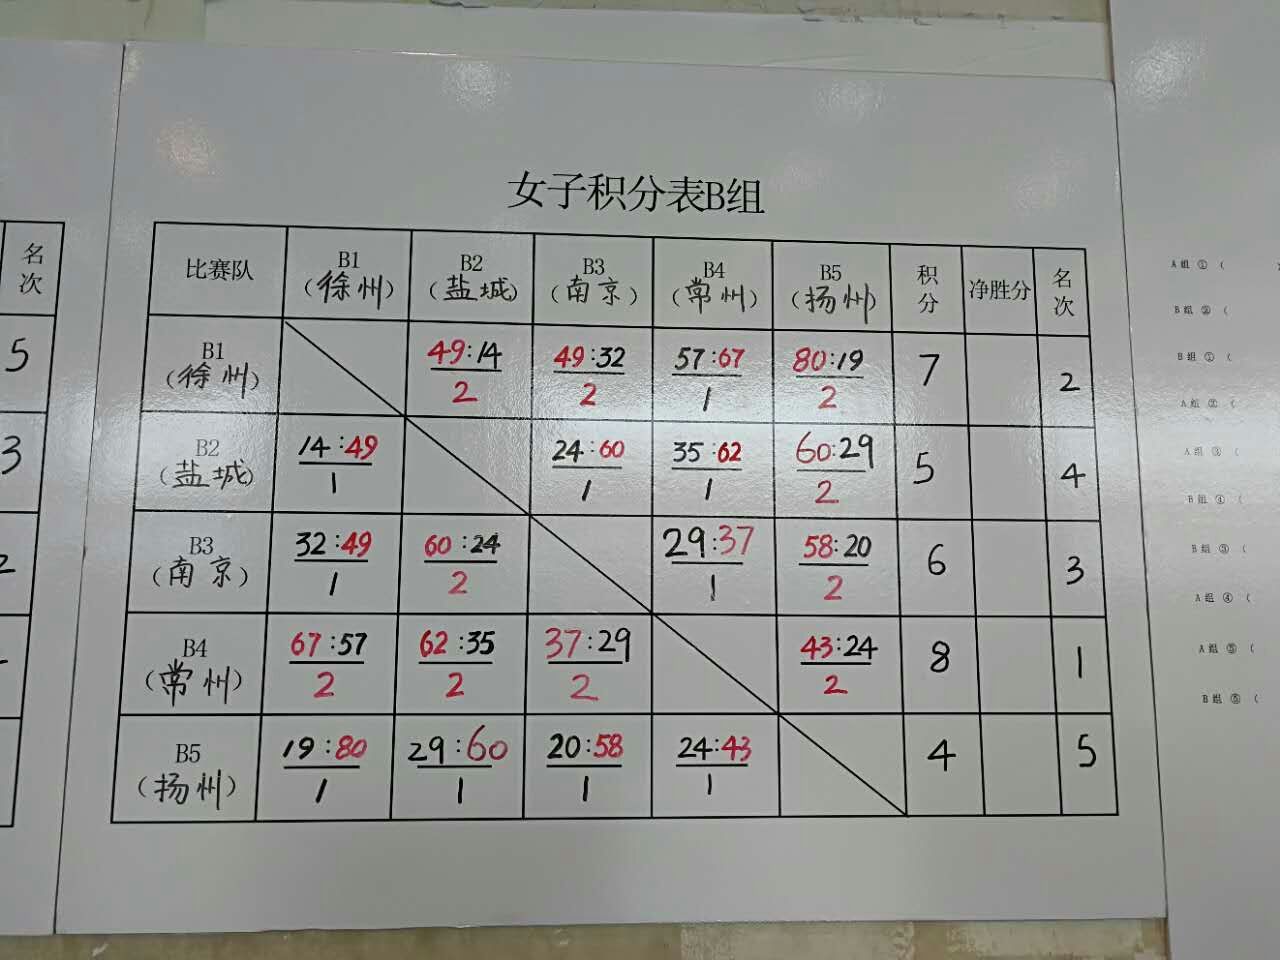 女子积分表B组
比赛队 B1 B2 B3 B4 B5 积分 净胜分 名次
(徐州) (盐城) (南京) (常州) (扬州)
B1 49:14 49:32 57:67 80:19 7 2
(徐州) 2 2 1 2
B2 14:49 24:60 35:62 60:29 5 4
(盐城) 1 1 1 2
B3 32:49 60:24 29:37 58:20 6 3
(南京) 1 2 1 2
B4 67:57 62:35 37:29 43:24 8 1
(常州) 2 2 2 2
B5 19:80 29:60 20:58 24:43 4 5
(扬州) 1 1 1 1
名次
5
3
A组 ① (
B组 ② (
B组 ① (
A组 ② (
A组 ③ (
B组 ④ (
B组 ③ (
A组 ④ (
A组 ⑤ (
B组 ⑤ (